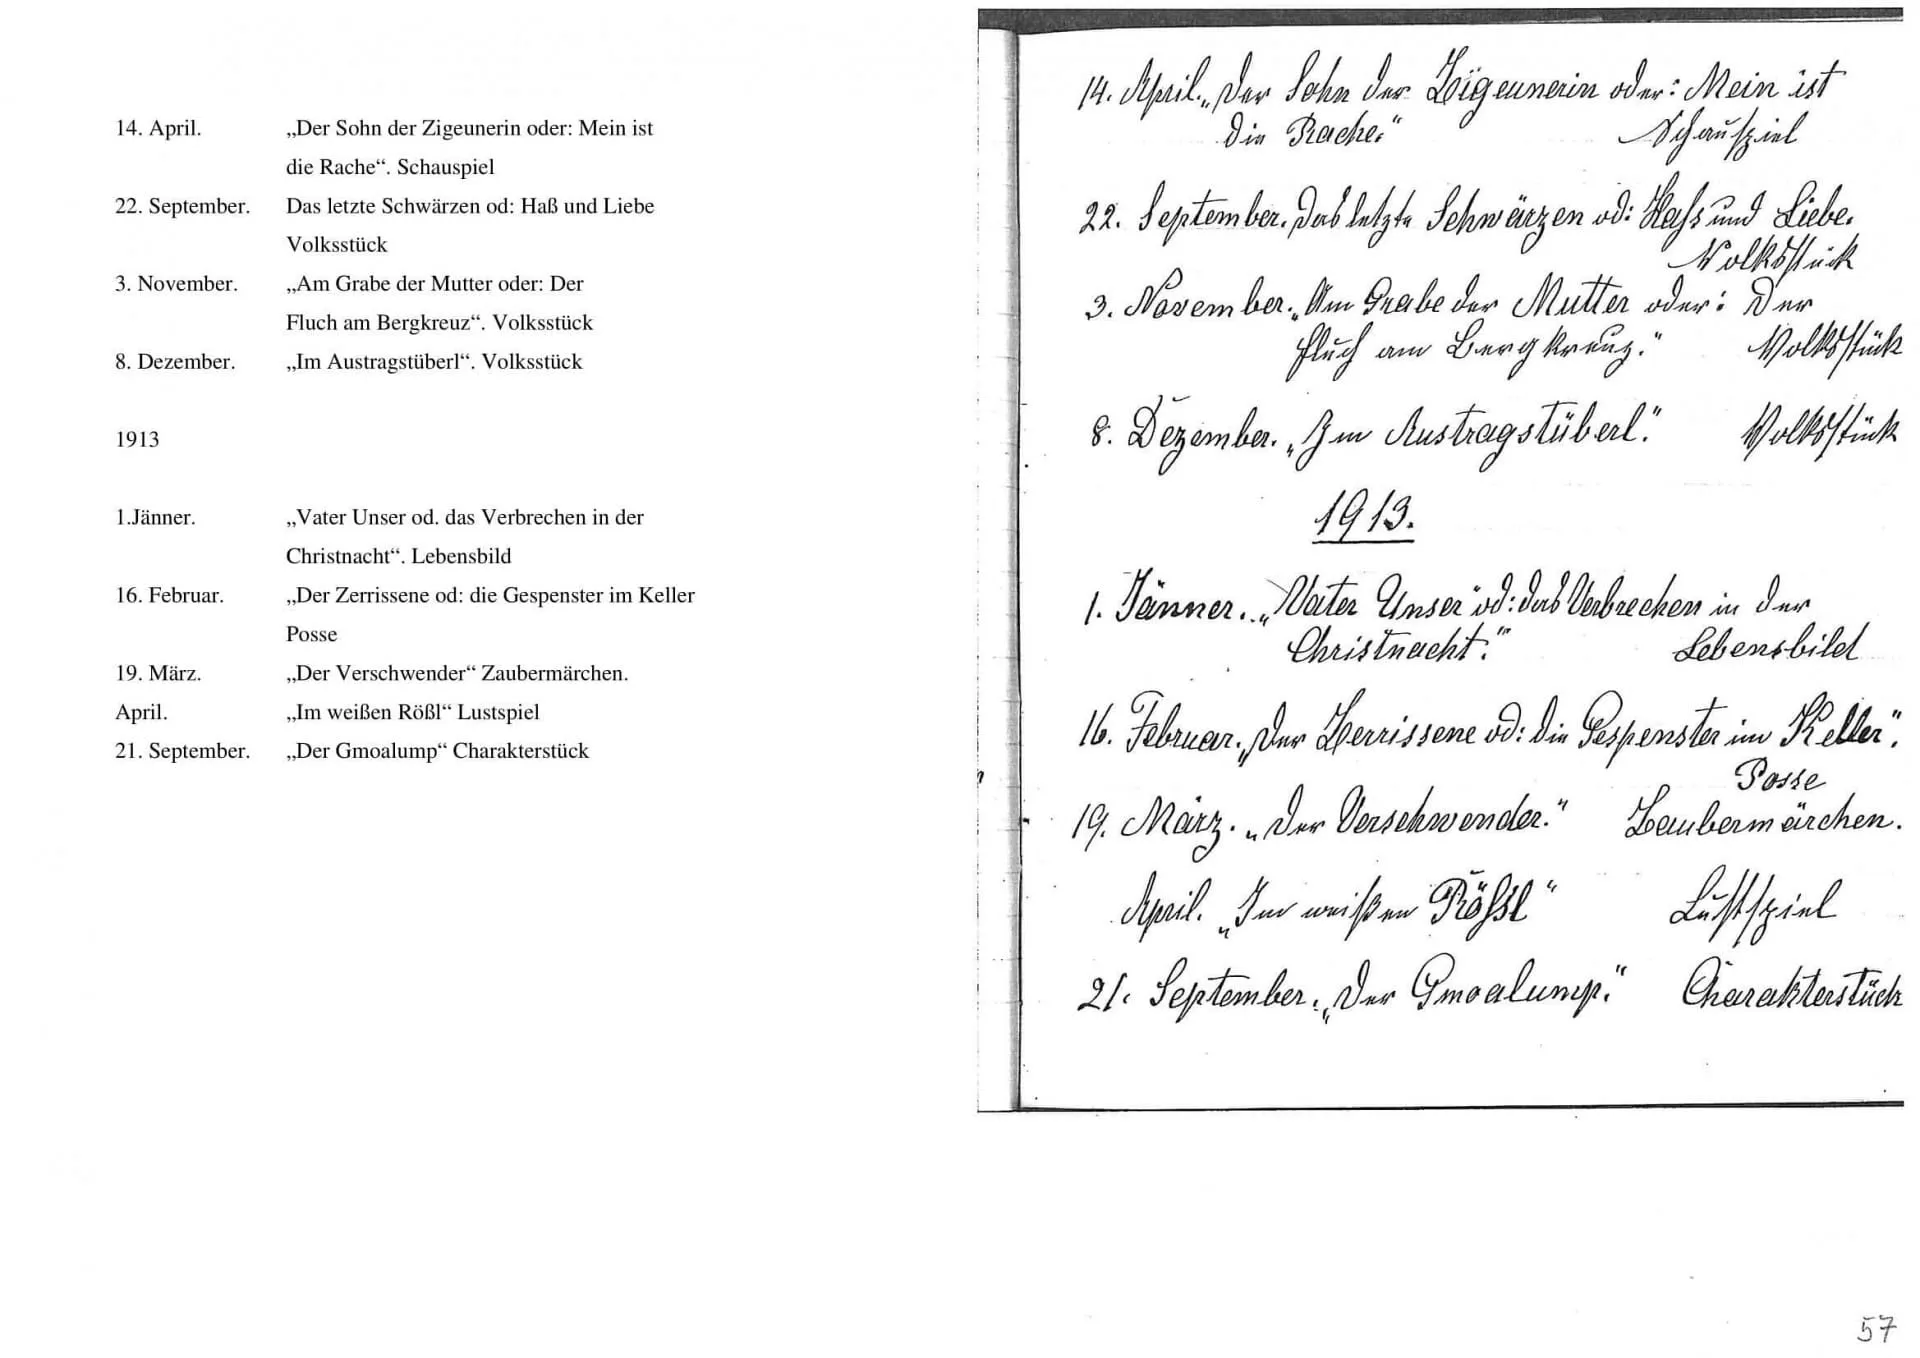 14. April. „Der Sohn der Zigeunerin oder: Mein ist
die Rache“. Schauspiel
22. September. Das letzte Schwärzen od: Haß und Liebe
Volksstück
3. November. „Am Grabe der Mutter oder: Der
Fluch am Bergkreuz“. Volksstück
8. Dezember. „Im Austragstüberl“. Volksstück
1913
1.Jänner. „Vater Unser od. das Verbrechen in der
Christnacht“. Lebensbild
16. Februar. „Der Zerrissene od: die Gespenster im Keller
Posse
19. März. „Der Verschwender“ Zaubermärchen.
April. „Im weißen Rößl“ Lustspiel
21. September. „Der Gmoalump“ Charakterstück
14. April. „Der Sohn der Zigeunerin oder: Mein ist
die Rache.“ Schauspiel
22. September. Das letzte Schwärzen od: Hass und Liebe.
Volksstück
3. November. „Am Grabe der Mutter oder: Der
Fluch am Bergkreuz.“ Volksstück
8. Dezember. „Im Austragstüberl.“ Volksstück
1913.
1. Jänner. „Vater Unser“ od: das Verbrechen in der
Christnacht.“ Lebensbild
16. Februar. „Der Zerrissene od: die Gespenster im Keller“.
Posse
19. März. „Der Verschwender.“ Zaubermärchen.
April. „Im weißen Rößl“ Lustspiel
21. September. „Der Gmoalump.“ Charakterstück
57